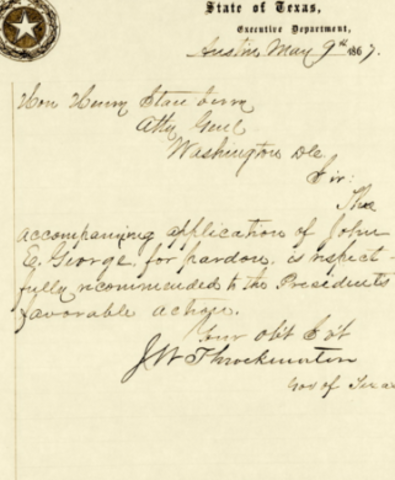 State of Texas,
Executive Department,
Austin May 9th 1867.
Hon Henry Stanberry
Atty Genl
Washington DC.
Sir:
The
accompanying application of John
E. George, for pardon, is respect-
fully recommended to the Presidents
favorable action.
Your obt Svt
J W Throckmorton
Gov of Texas